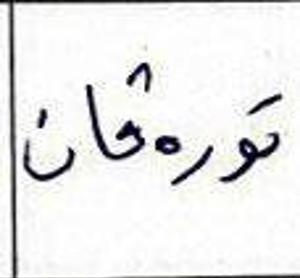 تورەڤان